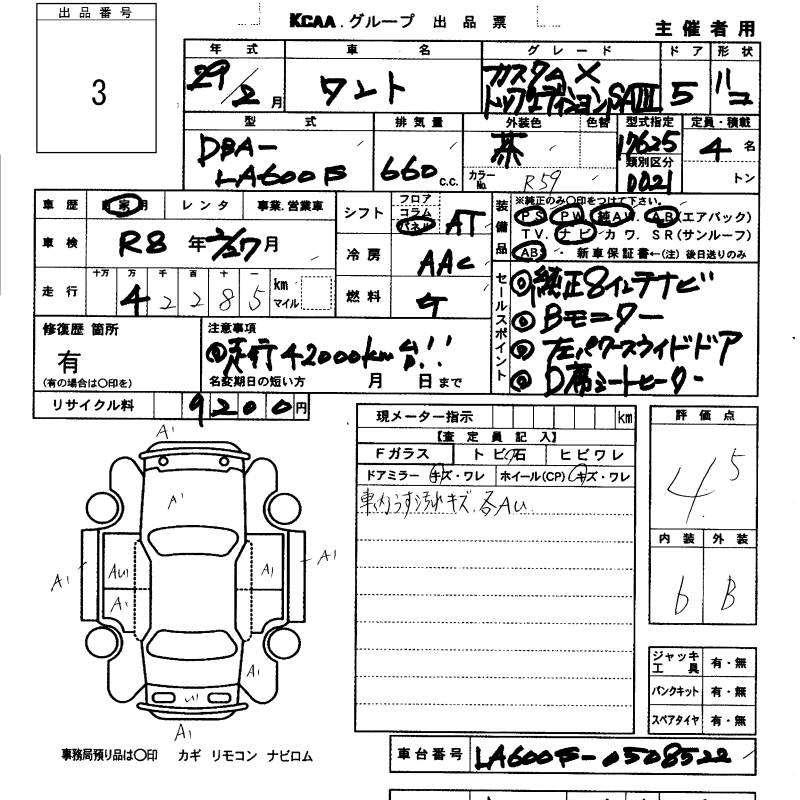 KCAA.グループ 出品票
主催者用
出品番号
3
年式 車名 グレード ドア 形状
29/2月 タント カスタムX トップエディションSAIII 5 ハコ
型式 排気量 外装色 色替 型式指定 定員・積載
DBA-LA600F 660 C.C. 茶 17625 4名
カラーNo. R59 類別区分 0021 トン
車歴 自家用 レンタ 事業.営業車
車検 R8年2/27月
走行 十万 万 千 百 十 一
4 2 2 8 5 km マイル
シフト フロア コラム パネル AT
冷房 AAC
燃料 ケ
装備品 ※純正のみ〇印をつけて下さい。
PS PW 純AW. AB(エアバック)
TV. ナビ カワ. SR(サンルーフ)
ABS・新車保証書←(注)後日送りのみ
セールスポイント
◎純正8インチナビ
◎Bモニター
◎左パワースライドドア
◎D席シートヒーター
修復歴 箇所
有
(有の場合は〇印を)
注意事項
◎走行42000km台!!
名変期日の短い方 月 日まで
リサイクル料 9200円
現メーター指示 km
【査定員記入】
Fガラス トビ石 ヒビワレ
ドアミラー キズ・ワレ ホイール(CP) キズ・ワレ
車内うす汚れキズ.各AU.
評価点
4.5
内装 外装
6 B
ジャッキ工具 有・無
パンクキット 有・無
スペアタイヤ 有・無
A1
A1
A1 AU1 A1 A1
A1
A1
U1
A1
事務局預り品は〇印 カギ リモコン ナビロム
車台番号 LA600F-0508522